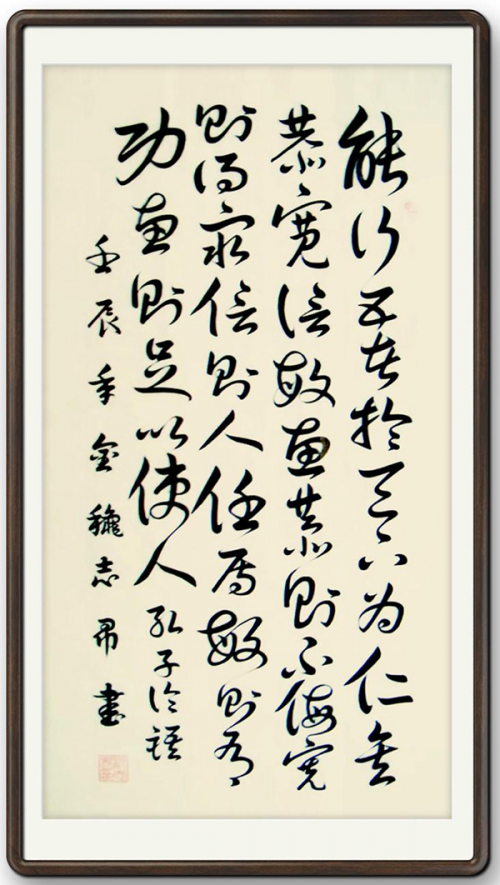 能行五者於天下為仁矣
恭寬信敏惠恭則不侮寬
則得衆信則人任焉敏則有
功惠則足以使人
孔子論語
壬辰年金龝志書